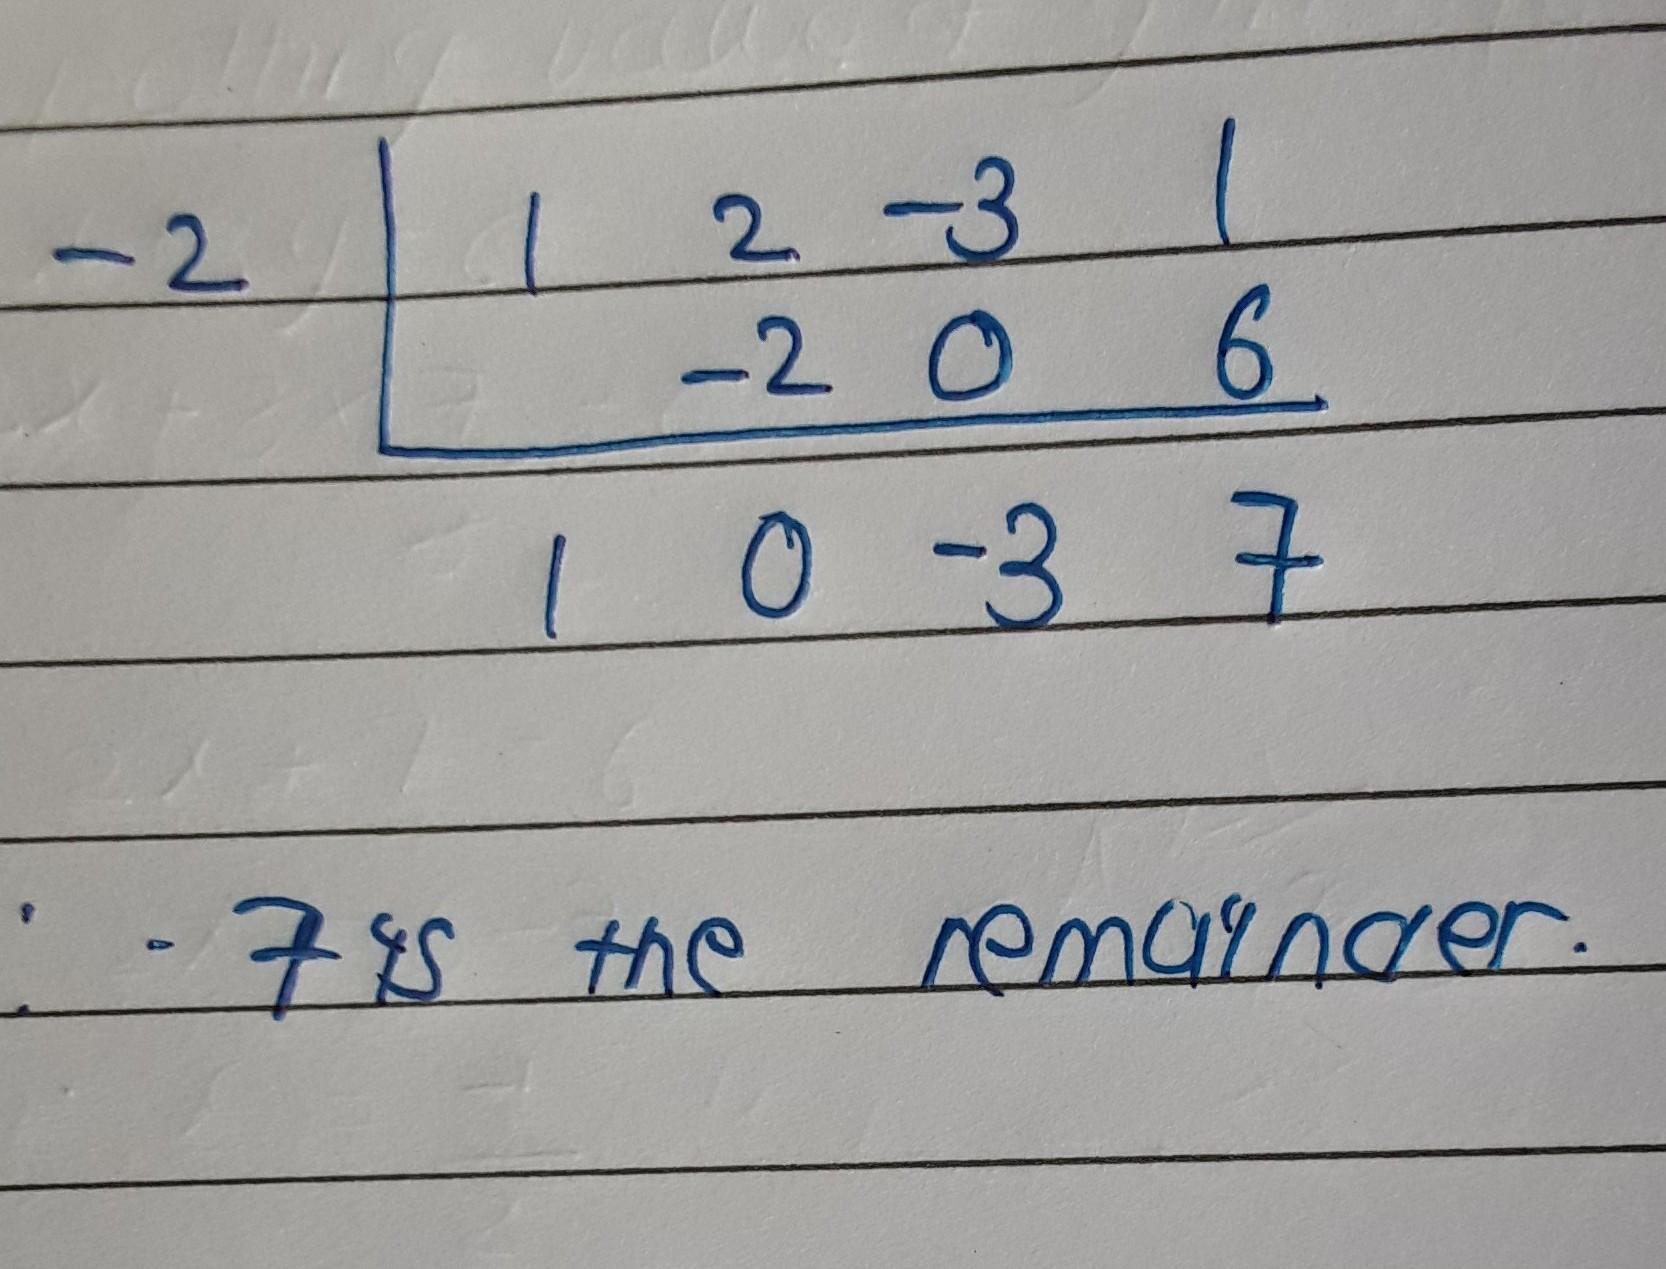 -2 | 1 2 -3 1
-2 0 6
1 0 -3 7
∴ 7 is the remainder.